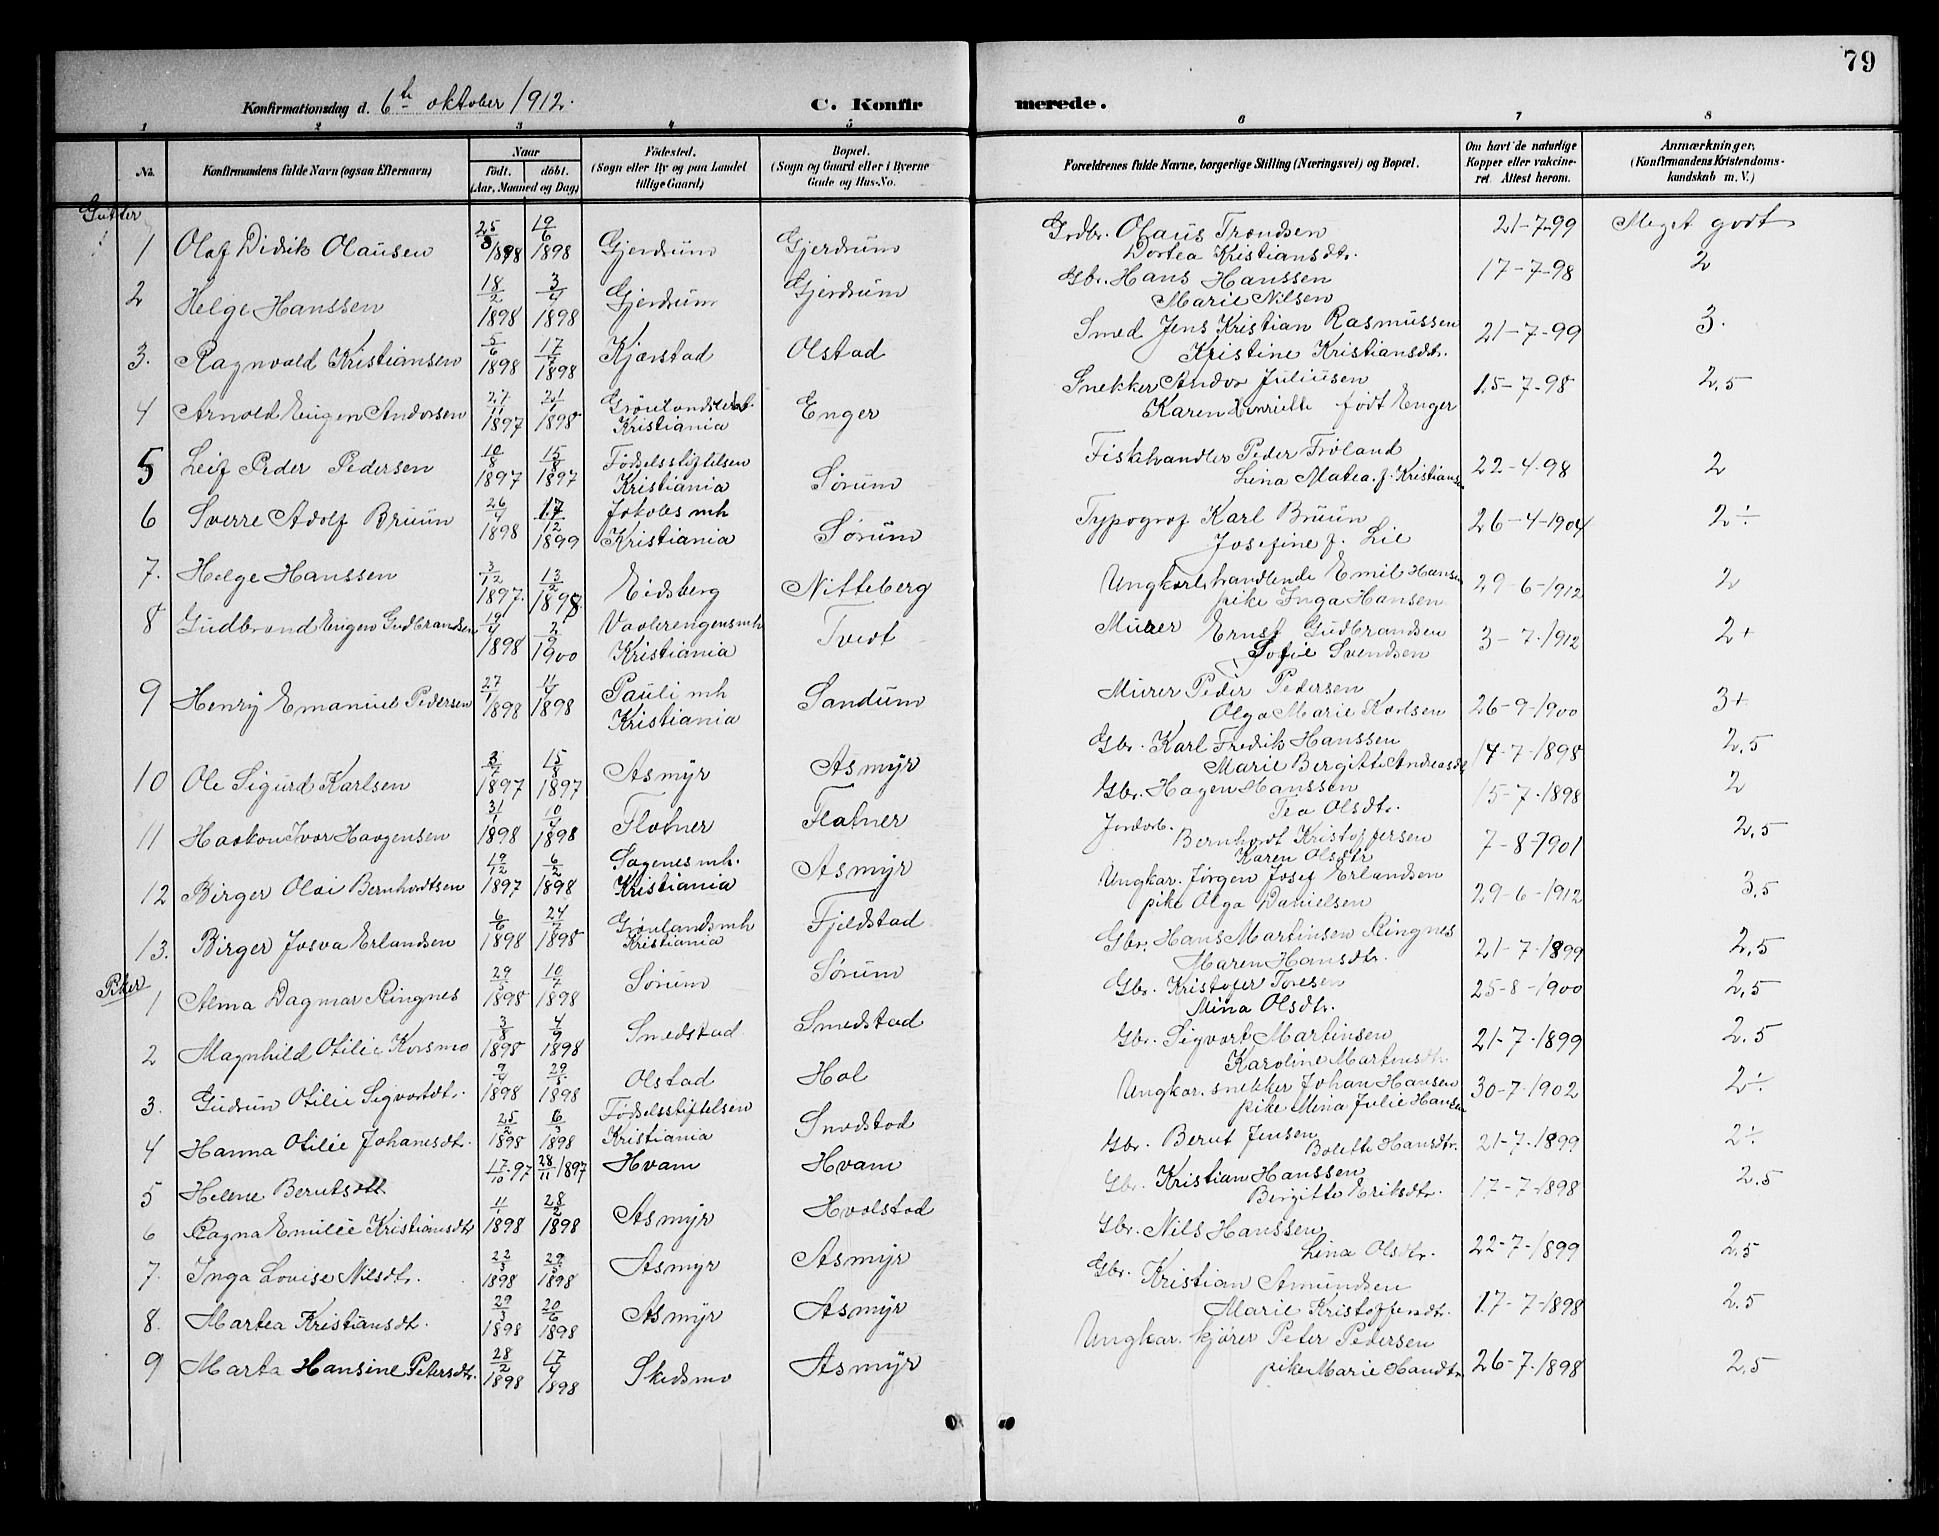 79
Konfirmationsdag d. 6te oktober 1912. C. Konfirmerede.
1 2 3 4 5 6 7 8
No. Konfirmandens fulde Navn (ogsaa Efternavn) Naar født. døbt. (Aar, Maaned og Dag) Fødested. (Sogn eller By og paa Landet tillige Gaard) Bopæl. (Sogn og Gaard eller i Byerne Gade og Hus-No. Forældrenes fulde Navne, borgerlige Stilling (Næringsvei) og Bopæl. Om havt de naturlige Kopper eller vakcineret Attest herom. Anmærkninger, (Konfirmandens Kristendomskundskab m. V.)
Gutter
1 Olaf Didrik Olausen 25/3 1898 19/6 1898 Gjerdrum Gjerdrum Grdbr. Olaus Trondsen Dortea Kristiansdtr. 21-7-99 Meget godt
2 Helge Hanssen 18/2 1898 3/4 1898 Gjerdrum Gjerdrum Gbr. Hans Hanssen Marie Nilsen 17-7-98 2
3. Ragnvald Kristiansen 5/6 1898 17/7 1898 Kjærstad Olstad Smed Jens Kristian Rasmussen Kristine Kristiansdtr. 21-7-99 3.
4 Arnold Eugen Andorsen 27/11 1897 21/1 1898 Kristiania Enger Snekker Andor Juliusen Karen Henriette født Enger 15-7-98 2,5
5 Leif Peder Pedersen 10/8 1897 15/8 1897 Fødselsstiftelsen Kristiania Sørum Fiskhandler Peder Frøland Lina Matea f. Kristians 22-4-98 2
6 Sverre Adolf Bruun 26/4 1898 17/12 1899 Jakobs mh Kristiania Sørum Typograf Karl Bruun Josefine f. Lie 26-4-1904 2÷
7. Helge Hanssen 3/12 1897. 13/2 1898 Eidsberg Nitteberg Ungkarl handlende Emil Hansen pike Inga Hansen 29-6-1912 2
8 Gudbrand Eugen Gudbrandsen 19/4 1898 2/9 1900 Vaalerengens mh Kristiania Tvedt Murer Ernst Gudbrandsen Sofie Svendsen 3-7-1912 2+
9 Henry Emanuel Pedersen 27/1 1898 11/4 1898 Pauli mh Kristiania Sandum Murer Peder Pedersen Olga Marie Karlsen 26-9-1900 3+
10 Ole Sigurd Karlsen 3/7 1897 15/8 1897 Asmyr Asmyr Gbr. Karl Fredrik Hanssen Marie Bergitte Andreasdtr 14-7-1898 2,5
11 Haakon Ivar Haagensen 31/1 1898 10/4 1898 Flatner Flatner Gbr. Hagen Hanssen Tea Olsdtr. 15-7-1898 2
12 Birger Olai Bernhardtsen 19/12 1897 6/2 1898 Sagenes mh. Kristiania Asmyr Jordarb. Bernhardt Kristoffersen Karen Olsdtr 7-8-1901 2,5
13. Birger Josva Erlandsen 6/6 1898 24/7 1898 Grønlands mh Kristiania Fjeldstad Ungkar. Jørgen Josef Erlandsen pike Olga Danielsen 29-6-1912 3,5
Piker
1 Alma Dagmar Ringnes 29/5 1898 10/7 1898 Sørum Sørum Gbr. Hans Martinsen Ringnes Maren Hansdtr. 21-7-1899 2,5
2 Magnhild Otilie Korsmo 3/8 1898 4/9 1898 Smedstad Smedstad Gbr. Kristofer Toresen Mina Olsdtr. 25-8-1900 2,5
3. Gudrun Otilie Sigvartdt. 9/4 1898 29/5 1898 Olstad Hol Gbr. Sigvart Martinsen Karoline Martinsdtr. 21-7-1899 2,5
4 Hanna Otilie Johanesdtr. 25/2 1898 6/3 1898 Fødselsstiftelsen Kristiania Smedstad Ungkar. snekker Johan Hansen pike Mina Julie Hansen 30-7-1902 2÷
5 Helene Berntsdtt 17/10-97 28/11 1897 Hvam Hvam Gbr. Bernt Jensen Bolette Hansdtr. 21-7-1899 2÷
6 Ragna Emilie Kristiansdtr 11/1 1898 28/2 1898 Asmyr Hvalstad Gbr. Kristian Hanssen Bergitte Eriksdtr. 17-7-1898 2.5
7. Inga Lovise Nilsdtr. 22/3 1898 29/5 1898 Asmyr Asmyr Gbr. Nils Hanssen Lina Olsdtr. 22-7-1899 2,5
8. Martea Kristiansdt. 29/3 1898 20/6 1898 Asmyr Asmyr Gbr. Kristian Amundsen Marie Kristoffersdtr. 17-7-1898 2.5
9 Marta Hansine Petersdtr. 28/2 1898 17/4 1898 Skedsmo Asmyr Ungkar. kjører Peter Pedersen pike Marie Hansdtr 26-7-1898 2,5